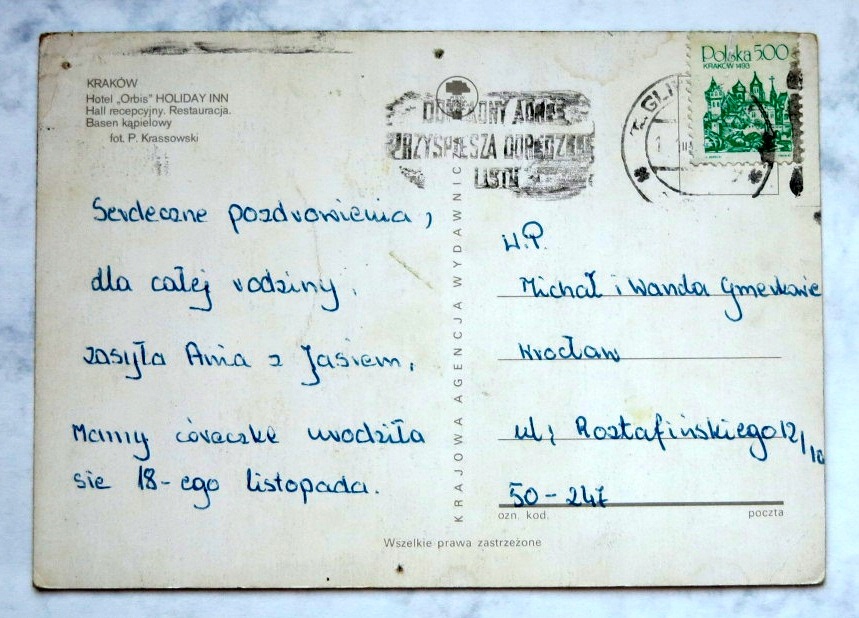 KRAKÓW
Hotel „Orbis” HOLIDAY INN
Hall recepcyjny. Restauracja.
Basen kąpielowy
fot. P. Krassowski
Polska 500
KRAKÓW 1493
ADRES
PRZYSPIESZA
LISTU
GLI
Serdeczne pozdrowienia,
dla całej rodziny.
zasyła Ania z Jasiem.
Mamy córeczkę urodziła
się 18-ego listopada.
KRAJOWA AGENCJA WYDAWNIC
W.P.
Michał i Wanda
Wrocław
ul; Rostafińskiego 12/10
50-247
ozn. kod. poczta
Wszelkie prawa zastrzeżone